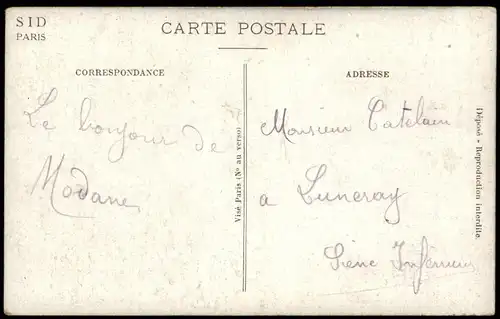 SID
PARIS
CARTE POSTALE
CORRESPONDANCE
ADRESSE
Le bonjour de
Modane
Monsieur Catelain
a Luneray
Seine Inférieure
Visé Paris (Nº au verso)
Déposé - Reproduction interdite.